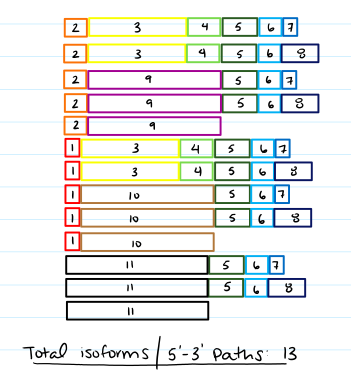 2 3 4 5 6 7
2 3 4 5 6 8
2 9 5 6 7
2 9 5 6 8
2 9
1 3 4 5 6 7
1 3 4 5 6 8
1 10 5 6 7
1 10 5 6 8
1 10
11 5 6 7
11 5 6 8
11
Total isoforms / 5'-3' paths: 13